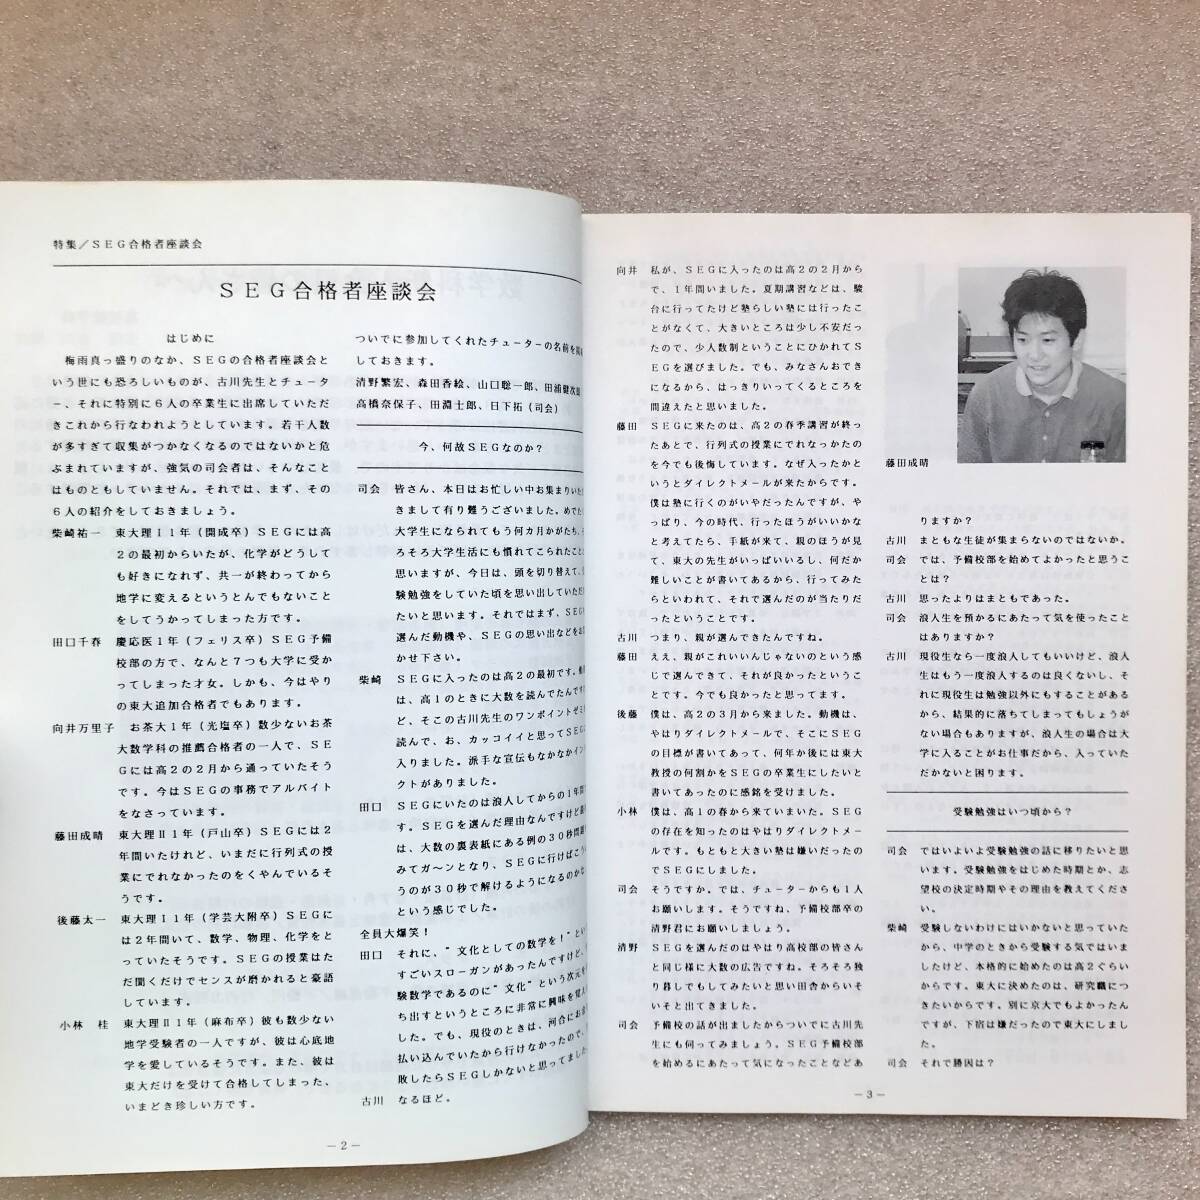 特集／ＳＥＧ合格者座談会
ＳＥＧ合格者座談会
はじめに
梅雨真っ盛りのなか、ＳＥＧの合格者座談会と
いう世にも恐ろしいものが、古川先生とチュータ
ー、それに特別に６人の卒業生に出席していただ
きこれから行なわれようとしています。若干人数
が多すぎて収集がつかなくなるのではないかと危
ぶまれていますが、強気の司会者は、そんなこと
はものともしていません。それでは、まず、その
６人の紹介をしておきましょう。
柴崎祐一　東大理Ⅰ１年（開成卒）ＳＥＧには高
２の最初からいたが、化学がどうして
も好きになれず、共一が終わってから
地学に変えるというとんでもないこと
をしてうかってしまった方です。
田口千春　慶応医１年（フェリス卒）ＳＥＧ予備
校部の方で、なんと７つも大学に受か
ってしまった才女。しかも、今はやり
の東大追加合格者でもあります。
向井万里子　お茶大１年（光塩卒）数少ないお茶
大数学科の推薦合格者の一人で、ＳＥ
Ｇには高２の２月から通っていたそう
です。今はＳＥＧの事務でアルバイト
をなさっています。
藤田成晴　東大理Ⅱ１年（戸山卒）ＳＥＧには２
年間いたけれど、いまだに行列式の授
業にでれなかったのをくやんでいるそ
うです。
後藤太一　東大理Ⅰ１年（学芸大附卒）ＳＥＧに
は２年間いて、数学、物理、化学をと
っていたそうです。ＳＥＧの授業はた
だ聞くだけでセンスが磨かれると豪語
しています。
小林　桂　東大理Ⅱ１年（麻布卒）彼も数少ない
地学受験者の一人ですが、彼は心底地
学を愛しているそうです。また、彼は
東大だけを受けて合格してしまった、
いまどき珍しい方です。
ついでに参加してくれたチューターの名前を
しておきます。
清野繁宏、森田香絵、山口聡一郎、田浦健次郎
高橋奈保子、田淵士郎、日下拓（司会）
今、何故ＳＥＧなのか？
司会　皆さん、本日はお忙しい中お集まりいた
きまして有り難うございました。めでた
大学生になられてもう何カ月かがたち、
ろそろ大学生活にも慣れてこられたこと
思いますが、今日は、頭を切り替えて、
験勉強をしていた頃を思い出していただ
たいと思います。それではまず、ＳＥＧ
選んだ動機や、ＳＥＧの思い出などをお
かせ下さい。
柴崎　ＳＥＧに入ったのは高２の最初です。
は、高１のときに大数を読んでたんです
ど、そこの古川先生のワンポイントゼミ
読んで、お、カッコイイと思ってＳＥＧ
入りました。派手な宣伝もなかなかイン
クトがありました。
田口　ＳＥＧにいたのは浪人してからの１年間
す。ＳＥＧを選んだ理由なんですけど
は、大数の裏表紙にある例の３０秒問題
みてガ～ンとなり、ＳＥＧに行けばこう
うのが３０秒で解けるようになるのかな
という感じでした。
全員大爆笑！
田口　それに、“文化としての数学を！”とい
すごいスローガンがあったんですけど、
験数学であるのに“文化”という次元を
ち出すというところに非常に興味を覚え
した。でも、現役のときは、河合にお金
払い込んでいたから行けなかったので、
敗したらＳＥＧしかないと思ってました
古川　なるほど。
－２－
向井　私が、ＳＥＧに入ったのは高２の２月から
で、１年間いました。夏期講習などは、駿
台に行ってたけど塾らしい塾には行ったこ
とがなくて、大きいところは少し不安だっ
たので、少人数制ということにひかれてＳ
ＥＧを選びました。でも、みなさんおでき
になるから、はっきりいってくるところを
間違えたと思いました。
藤田　ＳＥＧに来たのは、高２の春季講習が終っ
たあとで、行列式の授業にでれなっかたの
を今でも後悔しています。なぜ入ったかと
いうとダイレクトメールが来たからです。
僕は塾に行くのがいやだったんですが、や
っぱり、今の時代、行ったほうがいいかな
と考えてたら、手紙が来て、親のほうが見
て、東大の先生がいっぱいいるし、何だか
難しいことが書いてあるから、行ってみた
らといわれて、それで選んだのが当たりだ
ったということです。
古川　つまり、親が選んできたんですね。
藤田　ええ、親がこれいいんじゃないのという感
じで選んできて、それが良かったというこ
とです。今でも良かったと思ってます。
後藤　僕は、高２の３月から来ました。動機は、
やはりダイレクトメールで、そこにＳＥＧ
の目標が書いてあって、何年か後には東大
教授の何割かをＳＥＧの卒業生にしたいと
書いてあったのに感銘を受けました。
小林　僕は、高１の春から来ていまた。ＳＥＧ
の存在を知ったのはやはりダイレクトメー
ルです。もともと大きい塾は嫌いだったの
でＳＥＧにしました。
司会　そうですか。では、チューターからも１人
お願いします。そうですね、予備校部卒の
清野君にお願いしましょう。
清野　ＳＥＧを選んだのはやはり高校部の皆さん
と同じ様に大数の広告ですね。そろそろ独
り暮しでもしてみたいと思い田舎からいそ
いそと出てきました。
司会　予備校の話が出ましたからついでに古川先
生にも伺ってみましょう。ＳＥＧ予備校部
を始めるにあたって気になったことなどあ
藤田成晴
りますか？
古川　まともな生徒が集まらないのではないか。
司会　では、予備校部を始めてよかったと思うこ
とは？
古川　思ったよりはまともであった。
司会　浪人生を預かるにあたって気を使ったこと
はありますか？
古川　現役生なら一度浪人してもいいけど、浪人
生はもう一度浪人するのは良くないし、そ
れに現役生は勉強以外にもすることがある
から、結果的に落ちてしまってもしょうが
ない場合もありますが、浪人生の場合は大
学に入ることがお仕事だから、入っていた
だかないと困ります。
受験勉強はいつ頃から？
司会　ではいよいよ受験勉強の話に移りたいと思
います。受験勉強をはじめた時期とか、志
望校の決定時期やその理由を教えてくださ
い。
柴崎　受験しないわけにはいかないと思っていた
から、中学のときから受験する気ではいま
したけど、本格的に始めたのは高２ぐらい
からです。東大に決めたのは、研究職につ
きたいからです。別に京大でもよかったん
ですが、下宿は嫌だったので東大にしまし
た。
司会　それで勝因は？
－３－